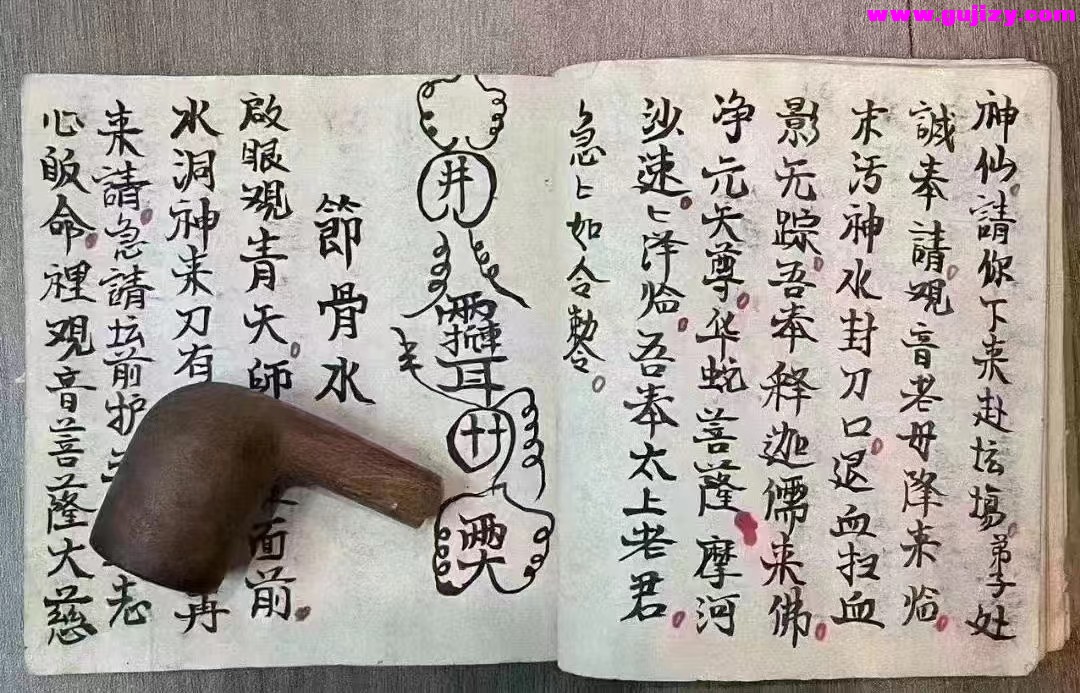 www.gujizy.com
神仙。請你下来赴坛場。弟子处
誠奉請。观音老母降来临。
末污神水封刀口。退血扫血
影无踪。吾奉释迦儒来佛。
净元天尊。华蛇菩萨摩河
沙速〻泽临。吾奉太上老君。
急〻如令勅令。
井
耳
節骨水
啟眼观青天。師面前。
水洞神来刀有
来請。急請坛前护
心皈命。裡观音菩萨大慈